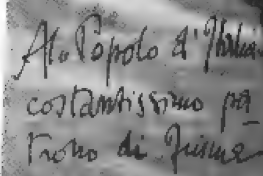 Al Popolo d'Italia
costantissimo pa
trono di Fiume